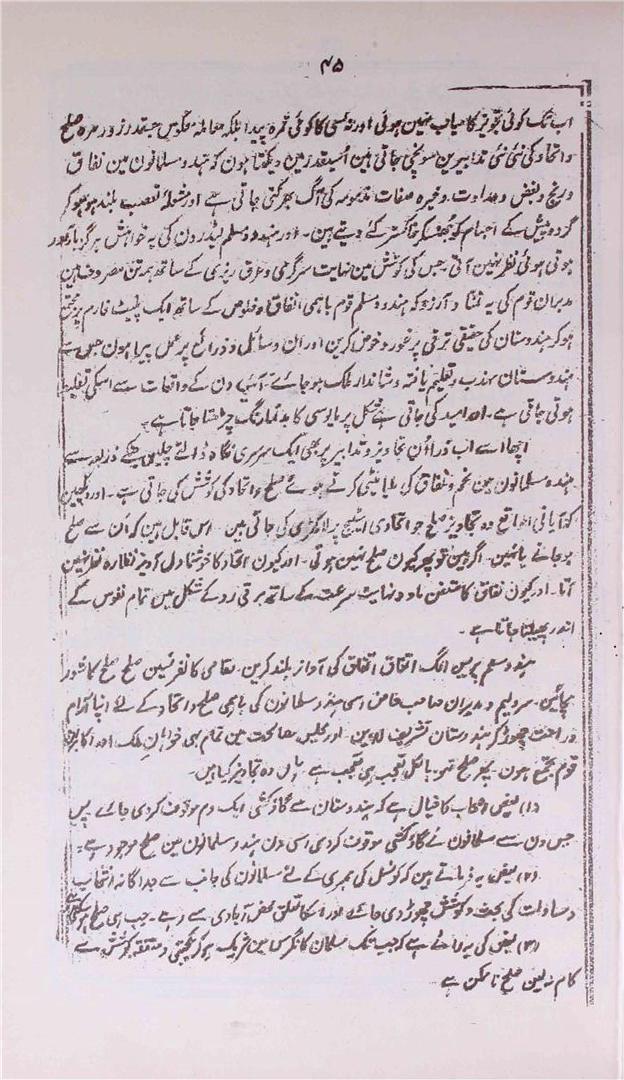 ۴۵
اب تک کوئی تجویز کامیاب نہین ہوئی اور نہ کسی کا کوئی ثمرہ پیدا بلکہ معاملہ معکوس جسقدر زور مرہ صلح
و اتحاد کی نئی نئی تدابیرین سوچی جاتی ہین اُسیقدر مین دیکھتا ہون کہ ہندو مسلمانون مین نفاق
و رنج و بغض و عداوت وغیرہ صفات مذمومہ کی آگ بھڑکتی جاتی ہے اور شعلۂ تعصب بلند ہو ہو کر
گرد و پیش کے اجسام کو خاکستر کئے دیتے ہین۔ اور ہندو مسلم لیڈرون کی یہ خواہش ہرگز بارور
ہوتی ہوئی نظر نہین آتی جس کی کوشش مین نہایت سرگرمی و عرق ریزی کے ساتھ ہمہ تن مصروف ہین
مدبران قوم کی یہ تمنا و آرزو کہ ہندو مسلم قوم باہمی اتفاق و خلوص کے ساتھ ایک پلیٹ فارم پر جمع
ہو کر ہندوستان کی حقیقی ترقی پر غور و خوض کرین اور اُن وسائل و ذرائع پر عمل پیرا ہون جس سے
ہندوستان مہذب و تعلیم یافتہ و شاندار ملک ہو جائے۔ آئے دن کے واقعات سے اسکی تغلیط
ہوتی جاتی ہے۔ اور امید کی جاتی ہے شکل پر مایوسی کا بدنما رنگ چڑھتا جاتا ہے۔
اچھا اسے اب ذرا اُن تجاویز و تدابیر پر بھی ایک سرسری نگاہ ڈالتے چلین جنکے ذریعہ سے
ہندو مسلمانون مین تخم نفاق کی کرتے ہوئے صلح و اتحاد کی کوشش کی جاتی ہے۔ اور دیکھین
کہ آیا فی الواقع وہ تجاویز صلح جو اتحادی اسٹیج پر لا کھڑی کی جاتی ہین۔ اس قابل ہین کہ اُن سے صلح
ہو جائے یا نہین۔ اگر ہین تو پھر کیون صلح نہین ہوتی۔ اور کیون اتحاد کا خوشنما دل آویز نظارہ نظر نہین
آتا۔ اور کیون نفاق کا متعفن مادہ نہایت سرعت کے ساتھ برقی رو کے شکل مین تمام نفوس کے
اندر پھیلتا جاتا ہے۔
ہندو مسلم پریس الگ اتفاق اتفاق کی آواز بلند کرین۔ مقامی کانفرنسین صلح صلح کا شور
مچائین۔ سر ولیم ویڈربرن صاحب خاص اسی ہندو مسلمانون کی باہمی صلح و اتحاد کے لئے اپنا آرام
و راحت چھوڑ کر ہندوستان تشریف لاوین۔ اور مجلس مصالحت مین تمام بہی خواہان ملک اور اکابر
قوم جمع ہون۔ پھر صلح نہو۔ بالکل تعجب ہی تعجب ہے ہان وہ تجاویز کیا ہین۔
(۱) بعض احباب کا خیال ہے کہ ہندوستان سے گاؤ کشی ایک دم موقوف کر دی جائے پس
جس دن سے مسلمانون نے گاؤ کشی موقوف کر دی اسی دن ہندو مسلمانون مین صلح موجود ہے۔
(۲) بعض یہ فرماتے ہین کہ کونسل کی ممبری کے لئے مسلمانون کی جانب سے جداگانہ انتخاب
و مساوات کی بحث و کوشش چھوڑ دی جائے اور اسکا تعلق محض آبادی سے رہے۔ جب ہی صلح ہو سکتی ہے
(۳) بعض کی یہ رائے ہے کہ جب تک مسلمان کانگرس مین شریک ہو کر یکجہتی و متفقہ کوشش سے
کام نہ لین صلح ناممکن ہے